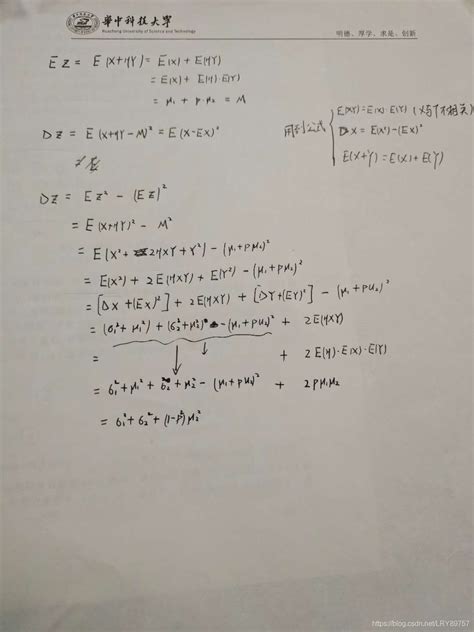 華中科技大學
Huazhong University of Science and Technology
明德、厚学、求是、创新
EZ = E(X+ηY) = E(X) + E(ηY)
= E(X) + E(η)·E(Y)
= μ₁ + pμ₂ = M
用到公式
E(XY)=E(X)·E(Y) (X与Y不相关)
DX = E(X²)-(EX)²
E(X+Y)=E(X)+E(Y)
DZ = E(X+ηY-M)² = E(X-EX)²
DZ = EZ² - (EZ)²
= E(X+ηY)² - M²
= E(X²+2ηXY+Y²) - (μ₁+pμ₂)²
= E(X²) + 2E(ηXY) + E(Y²) - (μ₁+pμ₂)²
= [DX+(EX)²] + 2E(ηXY) + [DY+(EY)²] - (μ₁+pμ₂)²
= (σ₁²+μ₁²) + (σ₂²+μ₂²) - (μ₁+pμ₂)² + 2E(ηXY)
= + 2E(η)·E(X)·E(Y)
= σ₁²+μ₁²+σ₂²+μ₂² - (μ₁+pμ₂)² + 2pμ₁μ₂
= σ₁²+σ₂²+(1-p²)μ₂²
https://blog.csdn.net/LRY89757